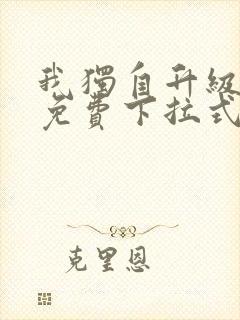 我獨自升級
免費下拉式
克里恩